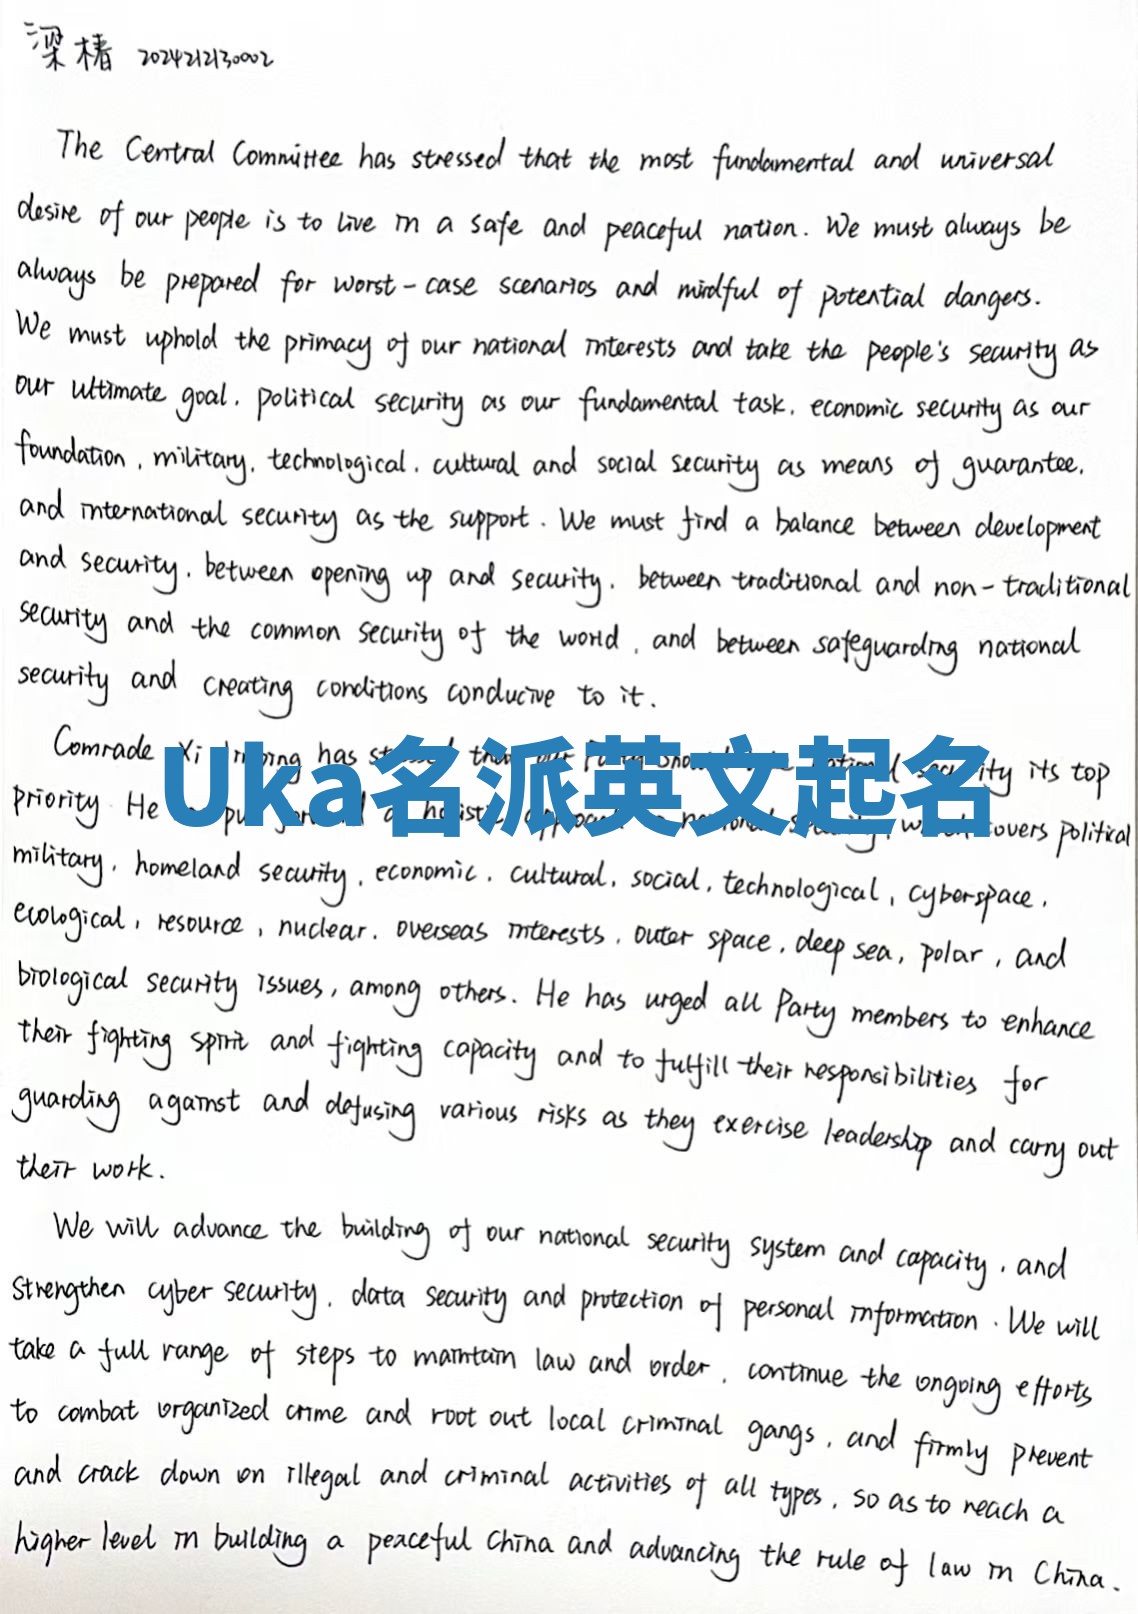 梁椿 2024212130002
The Central Committee has stressed that the most fundamental and universal
desire of our people is to live in a safe and peaceful nation. We must always be
always be prepared for worst-case scenarios and mindful of potential dangers.
We must uphold the primacy of our national interests and take the people's security as
our ultimate goal, political security as our fundamental task, economic security as our
foundation, military, technological, cultural and social security as means of guarantee,
and international security as the support. We must find a balance between development
and security, between opening up and security, between traditional and non-traditional
security and the common security of the world, and between safeguarding national
security and creating conditions conducive to it.
Comrade Xi Jinping has that our national security its top
Uka名派英文起名
priority. He a holistic national covers political
military, homeland security, economic, cultural, social, technological, cyberspace,
ecological, resource, nuclear, overseas interests, outer space, deep sea, polar, and
biological security issues, among others. He has urged all Party members to enhance
their fighting spirit and fighting capacity and to fulfill their responsibilities for
guarding against and defusing various risks as they exercise leadership and carry out
their work.
We will advance the building of our national security system and capacity, and
strengthen cyber security, data security and protection of personal information. We will
take a full range of steps to maintain law and order, continue the ongoing efforts
to combat organized crime and root out local criminal gangs, and firmly prevent
and crack down on illegal and criminal activities of all types, so as to reach a
higher level in building a peaceful China and advancing the rule of law in China.